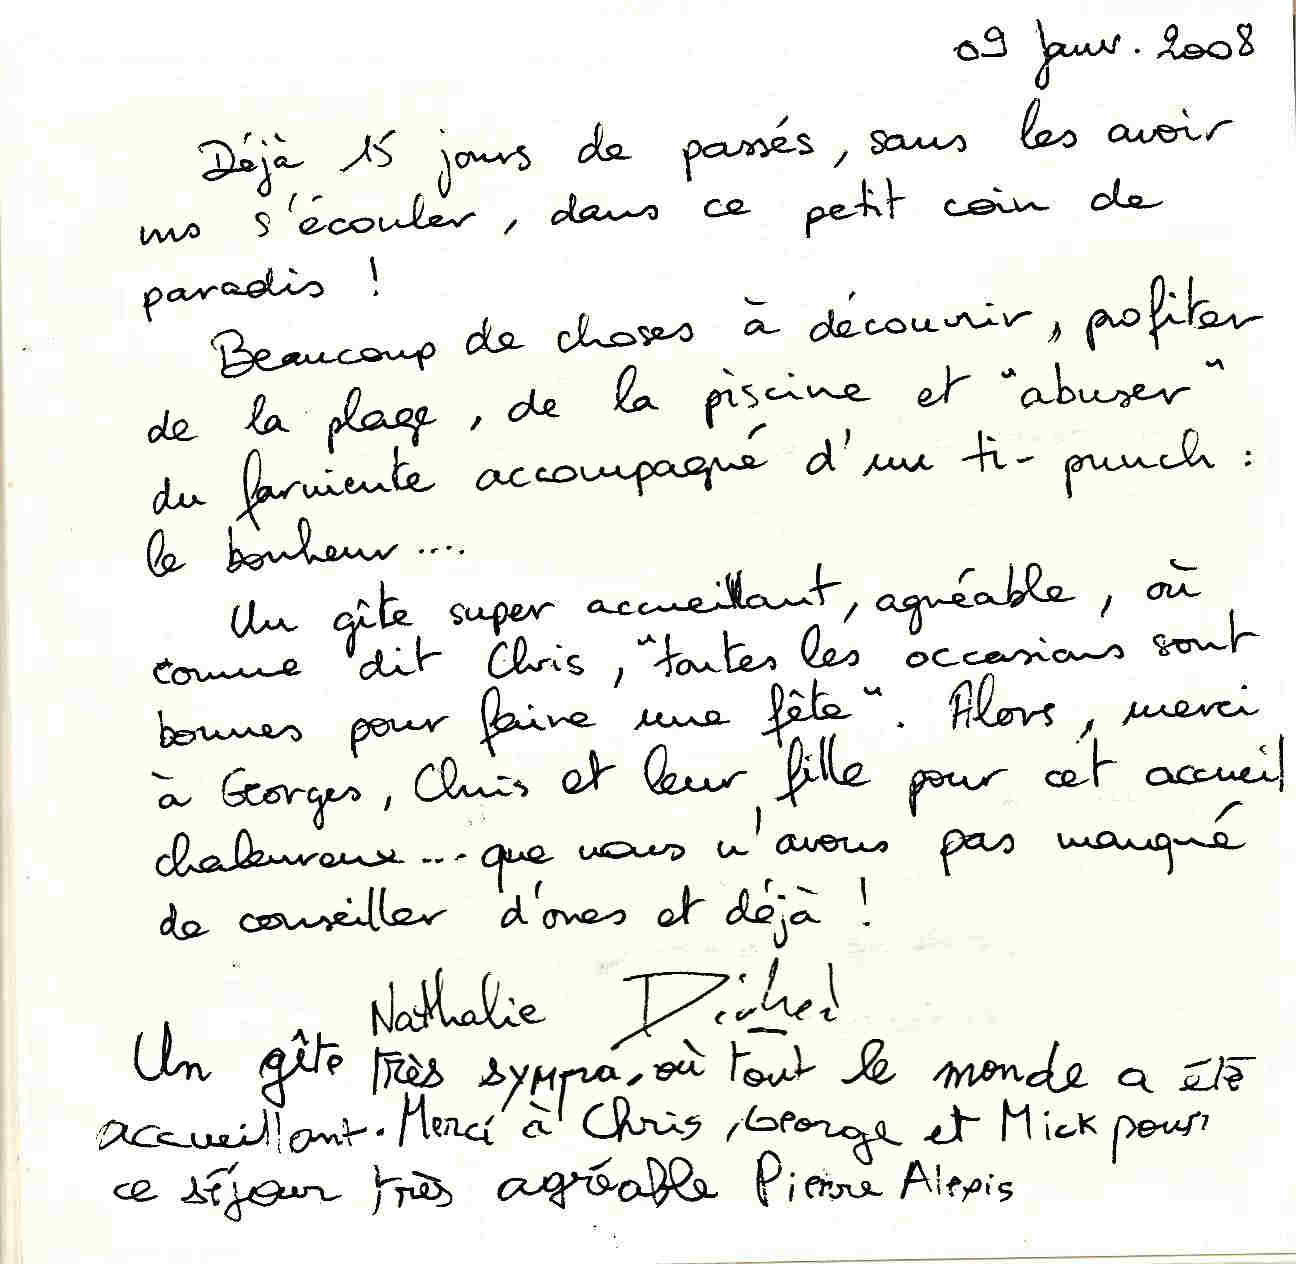 09 Janv. 2008
Déjà 15 jours de passés, sans les avoir
vus s'écouler, dans ce petit coin de
paradis !
Beaucoup de choses à découvrir, profiter
de la plage, de la piscine et "abuser"
du farniente accompagné d'un ti-punch :
le bonheur....
Un gîte super accueillant, agréable, où
comme dit Chris, "toutes les occasions sont
bonnes pour faire une fête". Alors, merci
à Georges, Chris et leur fille pour cet accueil
chaleureux... que nous n'avons pas manqué
de conseiller d'ores et déjà !
Nathalie
Un gîte très sympa, où tout le monde a été
accueillant. Merci à Chris, George et Mick pour
ce séjour très agréable Pierre Alexis